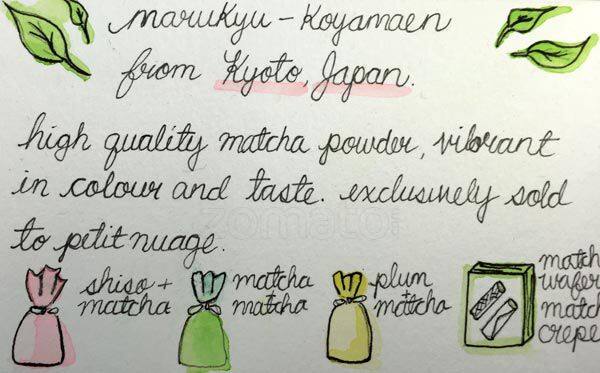 marukyu - Koyamaen
from Kyoto, Japan.
high quality matcha powder, vibrant
in colour and taste. exclusively sold
zomato
to petit nuage.
shiso +
matcha
matcha
matcha
plum
+
matcha
match
wafer
match
crepe